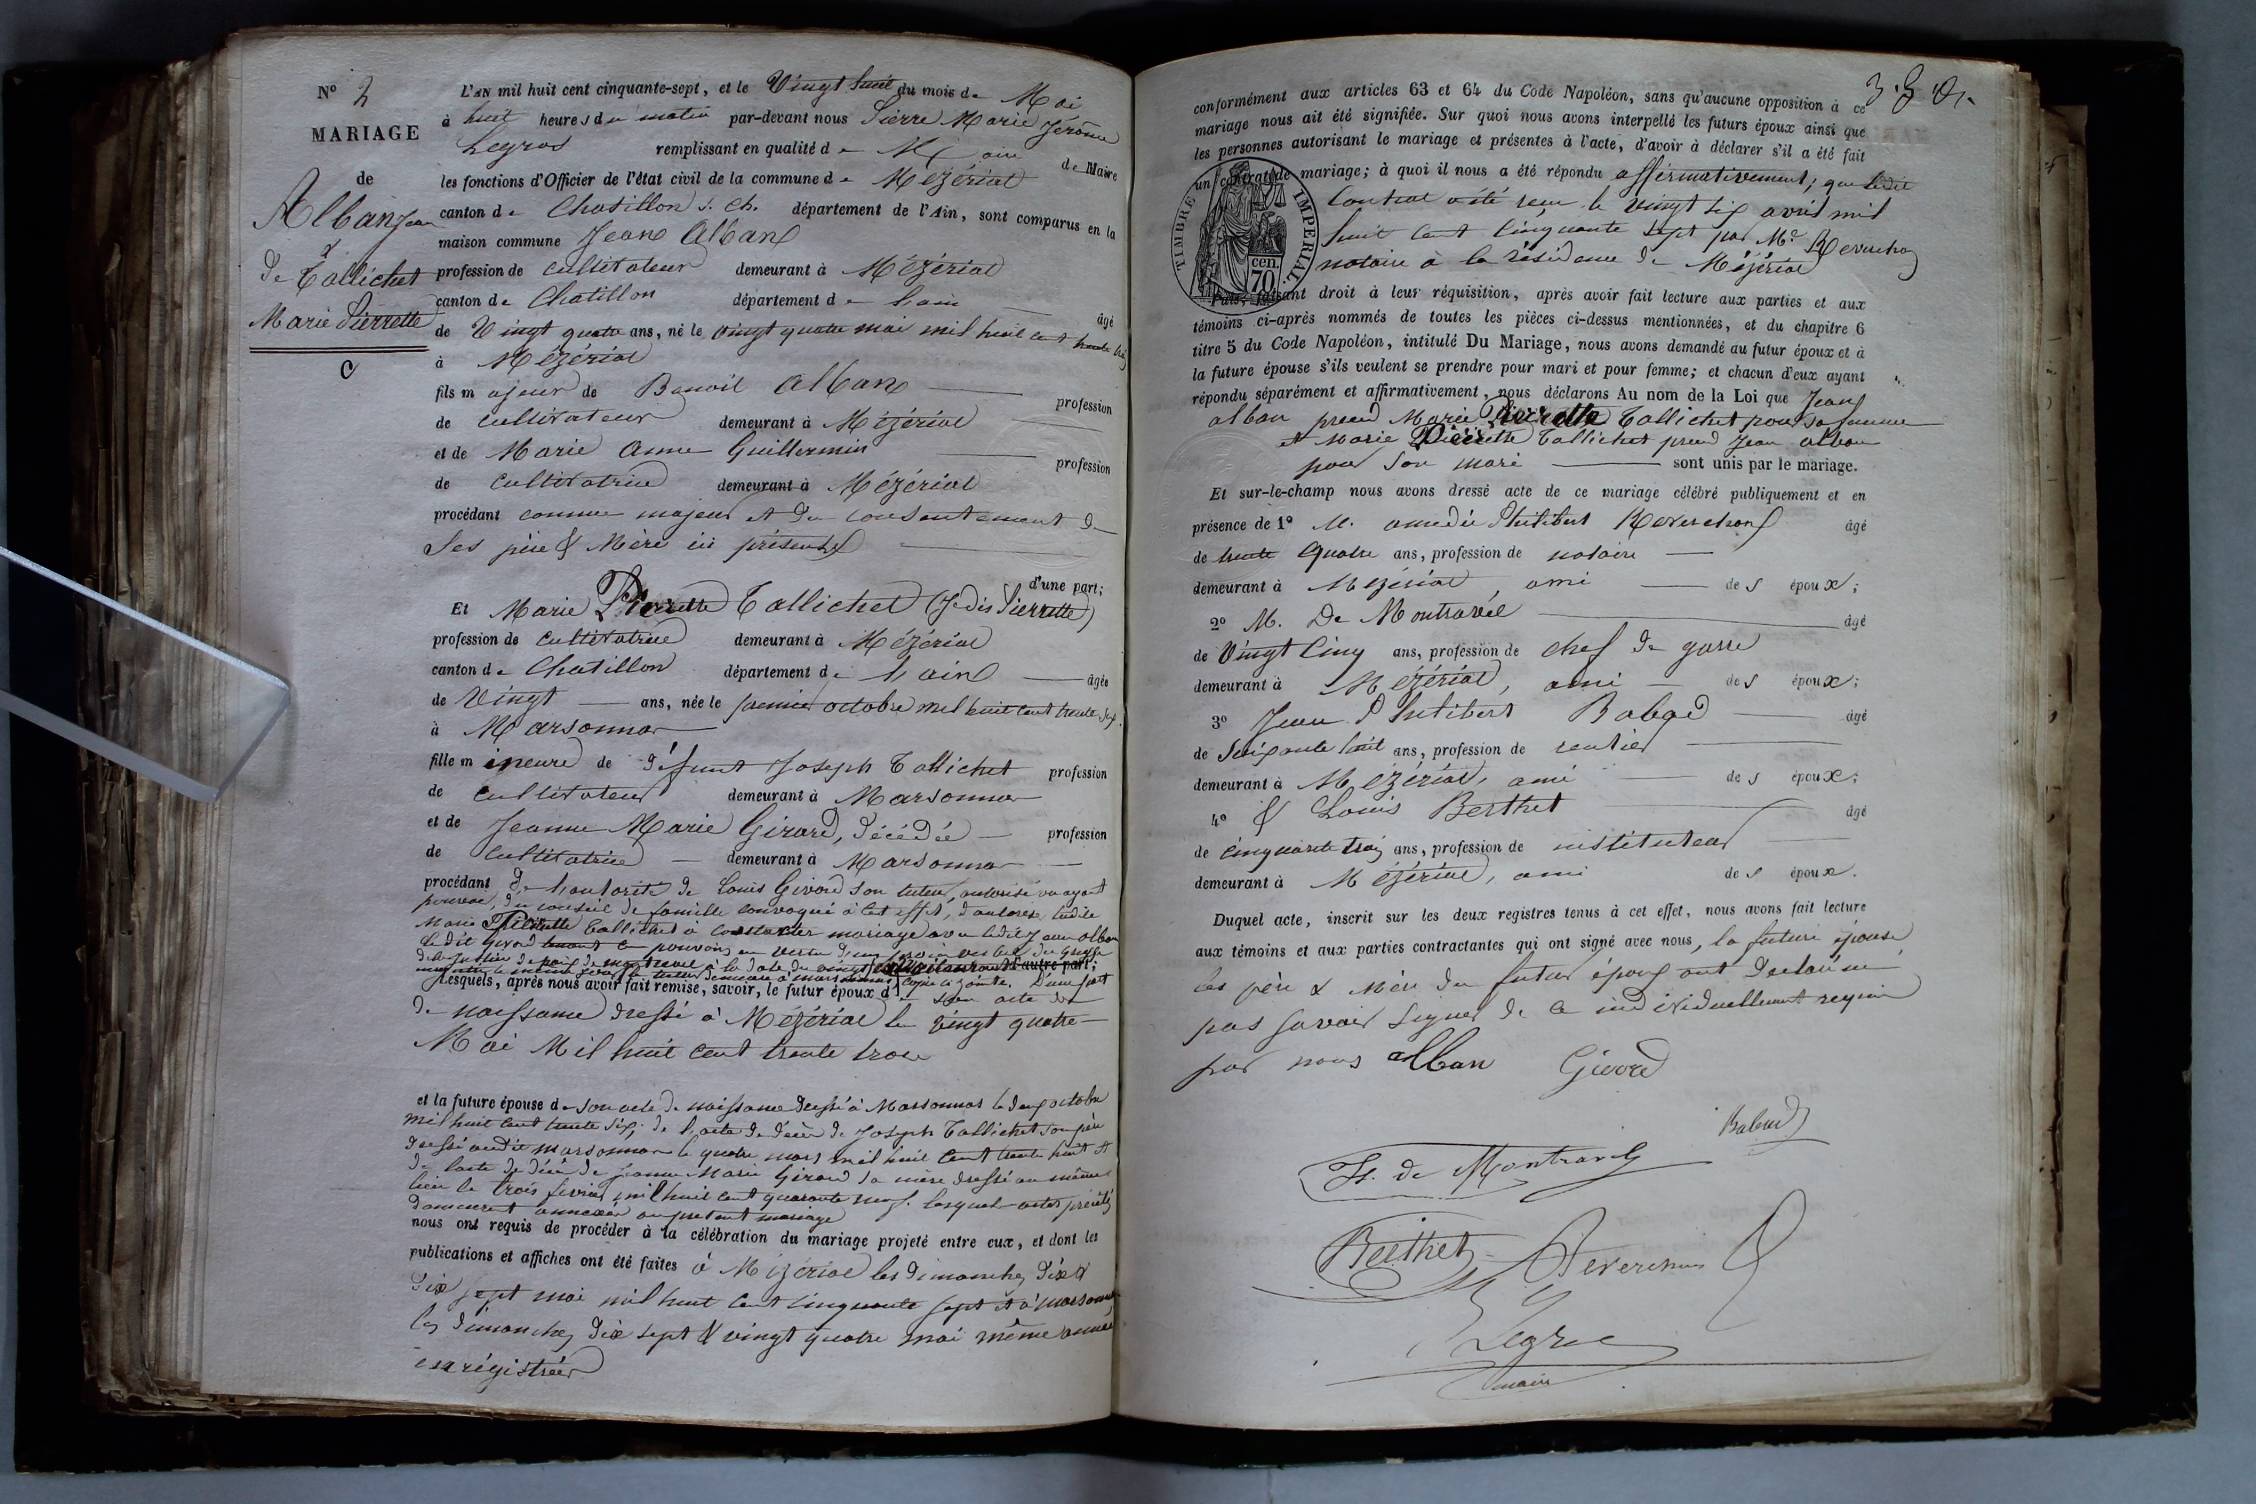 N° 2
MARIAGE
de
Alban Jean
&
de Tallichet
Marie Pierrette
C
L'AN mil huit cent cinquante-sept, et le Vingt huit du mois de Mai
à huit heures du matin par-devant nous Pierre Marie Jérôme
Legros remplissant en qualité de Maire
de Maire
les fonctions d'Officier de l'état civil de la commune de Mézériat
canton de Chatillon s. Ch. département de l'Ain, sont comparus en la
maison commune Jean Alban
profession de cultivateur demeurant à Mézériat
canton de Chatillon département de l'ain âgé
de Vingt quatre ans, né le vingt quatre mai mil huit cent trente trois
à Mézériat
fils majeur de Benoit Alban profession
de cultivateur demeurant à Mézériat
et de Marie Anne Guillermin profession
de cultivatrice demeurant à Mézériat
procédant comme majeur et du consentement de
ses père & Mère ici présents
d'une part;
Et Marie Pierrette Tallichet (je dis Pierrette)
profession de cultivatrice demeurant à Mézériat
canton de Chatillon département de l'ain âgée
de Vingt ans, née le premier octobre mil huit cent trente six
à Marsonnas
fille mineure de défunt Joseph Tallichet profession
de cultivateur demeurant à Marsonnas
et de Jeanne Marie Girard, décédée profession
de cultivatrice demeurant à Marsonnas
procédant de l'autorité de Louis Givord son tuteur, autorisé ou ayant
pouvoir, du conseil de famille convoqué à cet effet, d'autoriser ladite
Marie Pierrette Tallichet à contracter mariage avec ledit Jean Alban
ledit Givord pouvoirs en vertu d'un procès verbal du greffe
de la justice de paix de montrevel à la date du vingt d'autre part;
Lesquels, après nous avoir fait remise, savoir, le futur époux de son acte
de naissance dressé à Mézériat le vingt quatre
Mai Mil huit cent trente trois
et la future épouse de son acte de naissance dressé à Marsonnas le deux octobre
mil huit cent trente six; de l'acte de décès de Joseph Tallichet son père
dressé audit marsonnas le quatre mars mil huit cent trente huit et
de l'acte de décès de Jeanne Marie Girard sa mère dressé au même
lieu le trois février mil huit cent quarante neuf. lesquels actes précités
demeurent annexés au présent mariage
nous ont requis de procéder à la célébration du mariage projeté entre eux, et dont les
publications et affiches ont été faites à Mézériat les dimanches dix &
dix sept mai mil huit cent cinquante sept et à marsonnas
les dimanches dix sept & vingt quatre mai même année
enregistrées
conformément aux articles 63 et 64 du Code Napoléon, sans qu'aucune opposition à ce
mariage nous ait été signifiée. Sur quoi nous avons interpellé les futurs époux ainsi que
les personnes autorisant le mariage et présentes à l'acte, d'avoir à déclarer s'il a été fait
un contrat de mariage; à quoi il nous a été répondu affirmativement; que ledit
contrat a été reçu le vingt six avril mil
huit cent cinquante sept par Me Reverchon
notaire à la résidence de Mézériat
TIMBRE IMPERIAL
cen. 70
Puis, faisant droit à leur réquisition, après avoir fait lecture aux parties et aux
témoins ci-après nommés de toutes les pièces ci-dessus mentionnées, et du chapitre 6
titre 5 du Code Napoléon, intitulé Du Mariage, nous avons demandé au futur époux et à
la future épouse s'ils veulent se prendre pour mari et pour femme; et chacun d'eux ayant
répondu séparément et affirmativement, nous déclarons Au nom de la Loi que Jean
alban prend Marie Pierrette Tallichet pour sa femme
et Marie Pierrette Tallichet prend Jean alban
pour son mari sont unis par le mariage.
Et sur-le-champ nous avons dressé acte de ce mariage célébré publiquement et en
présence de 1° M. amedée Philibert Reverchon âgé
de trente quatre ans, profession de notaire
demeurant à Mézériat, ami des époux;
2° M. De Montravel âgé
de Vingt cinq ans, profession de chef de garre
demeurant à Mézériat, ami des époux;
3° Jean Philibert Baboud âgé
de Soixante huit ans, profession de rentier
demeurant à Mézériat, ami des époux;
4° & Louis Berthet âgé
de cinquante trois ans, profession de instituteur
demeurant à Mézériat, ami des époux.
Duquel acte, inscrit sur les deux registres tenus à cet effet, nous avons fait lecture
aux témoins et aux parties contractantes qui ont signé avec nous, la future épouse
les père & Mère du futur époux ont déclaré ne
pas savoir signer de ce individuellement requis
par nous alban Givord
Baboud
de Montravel
Berthet Reverchon
Legros
maire